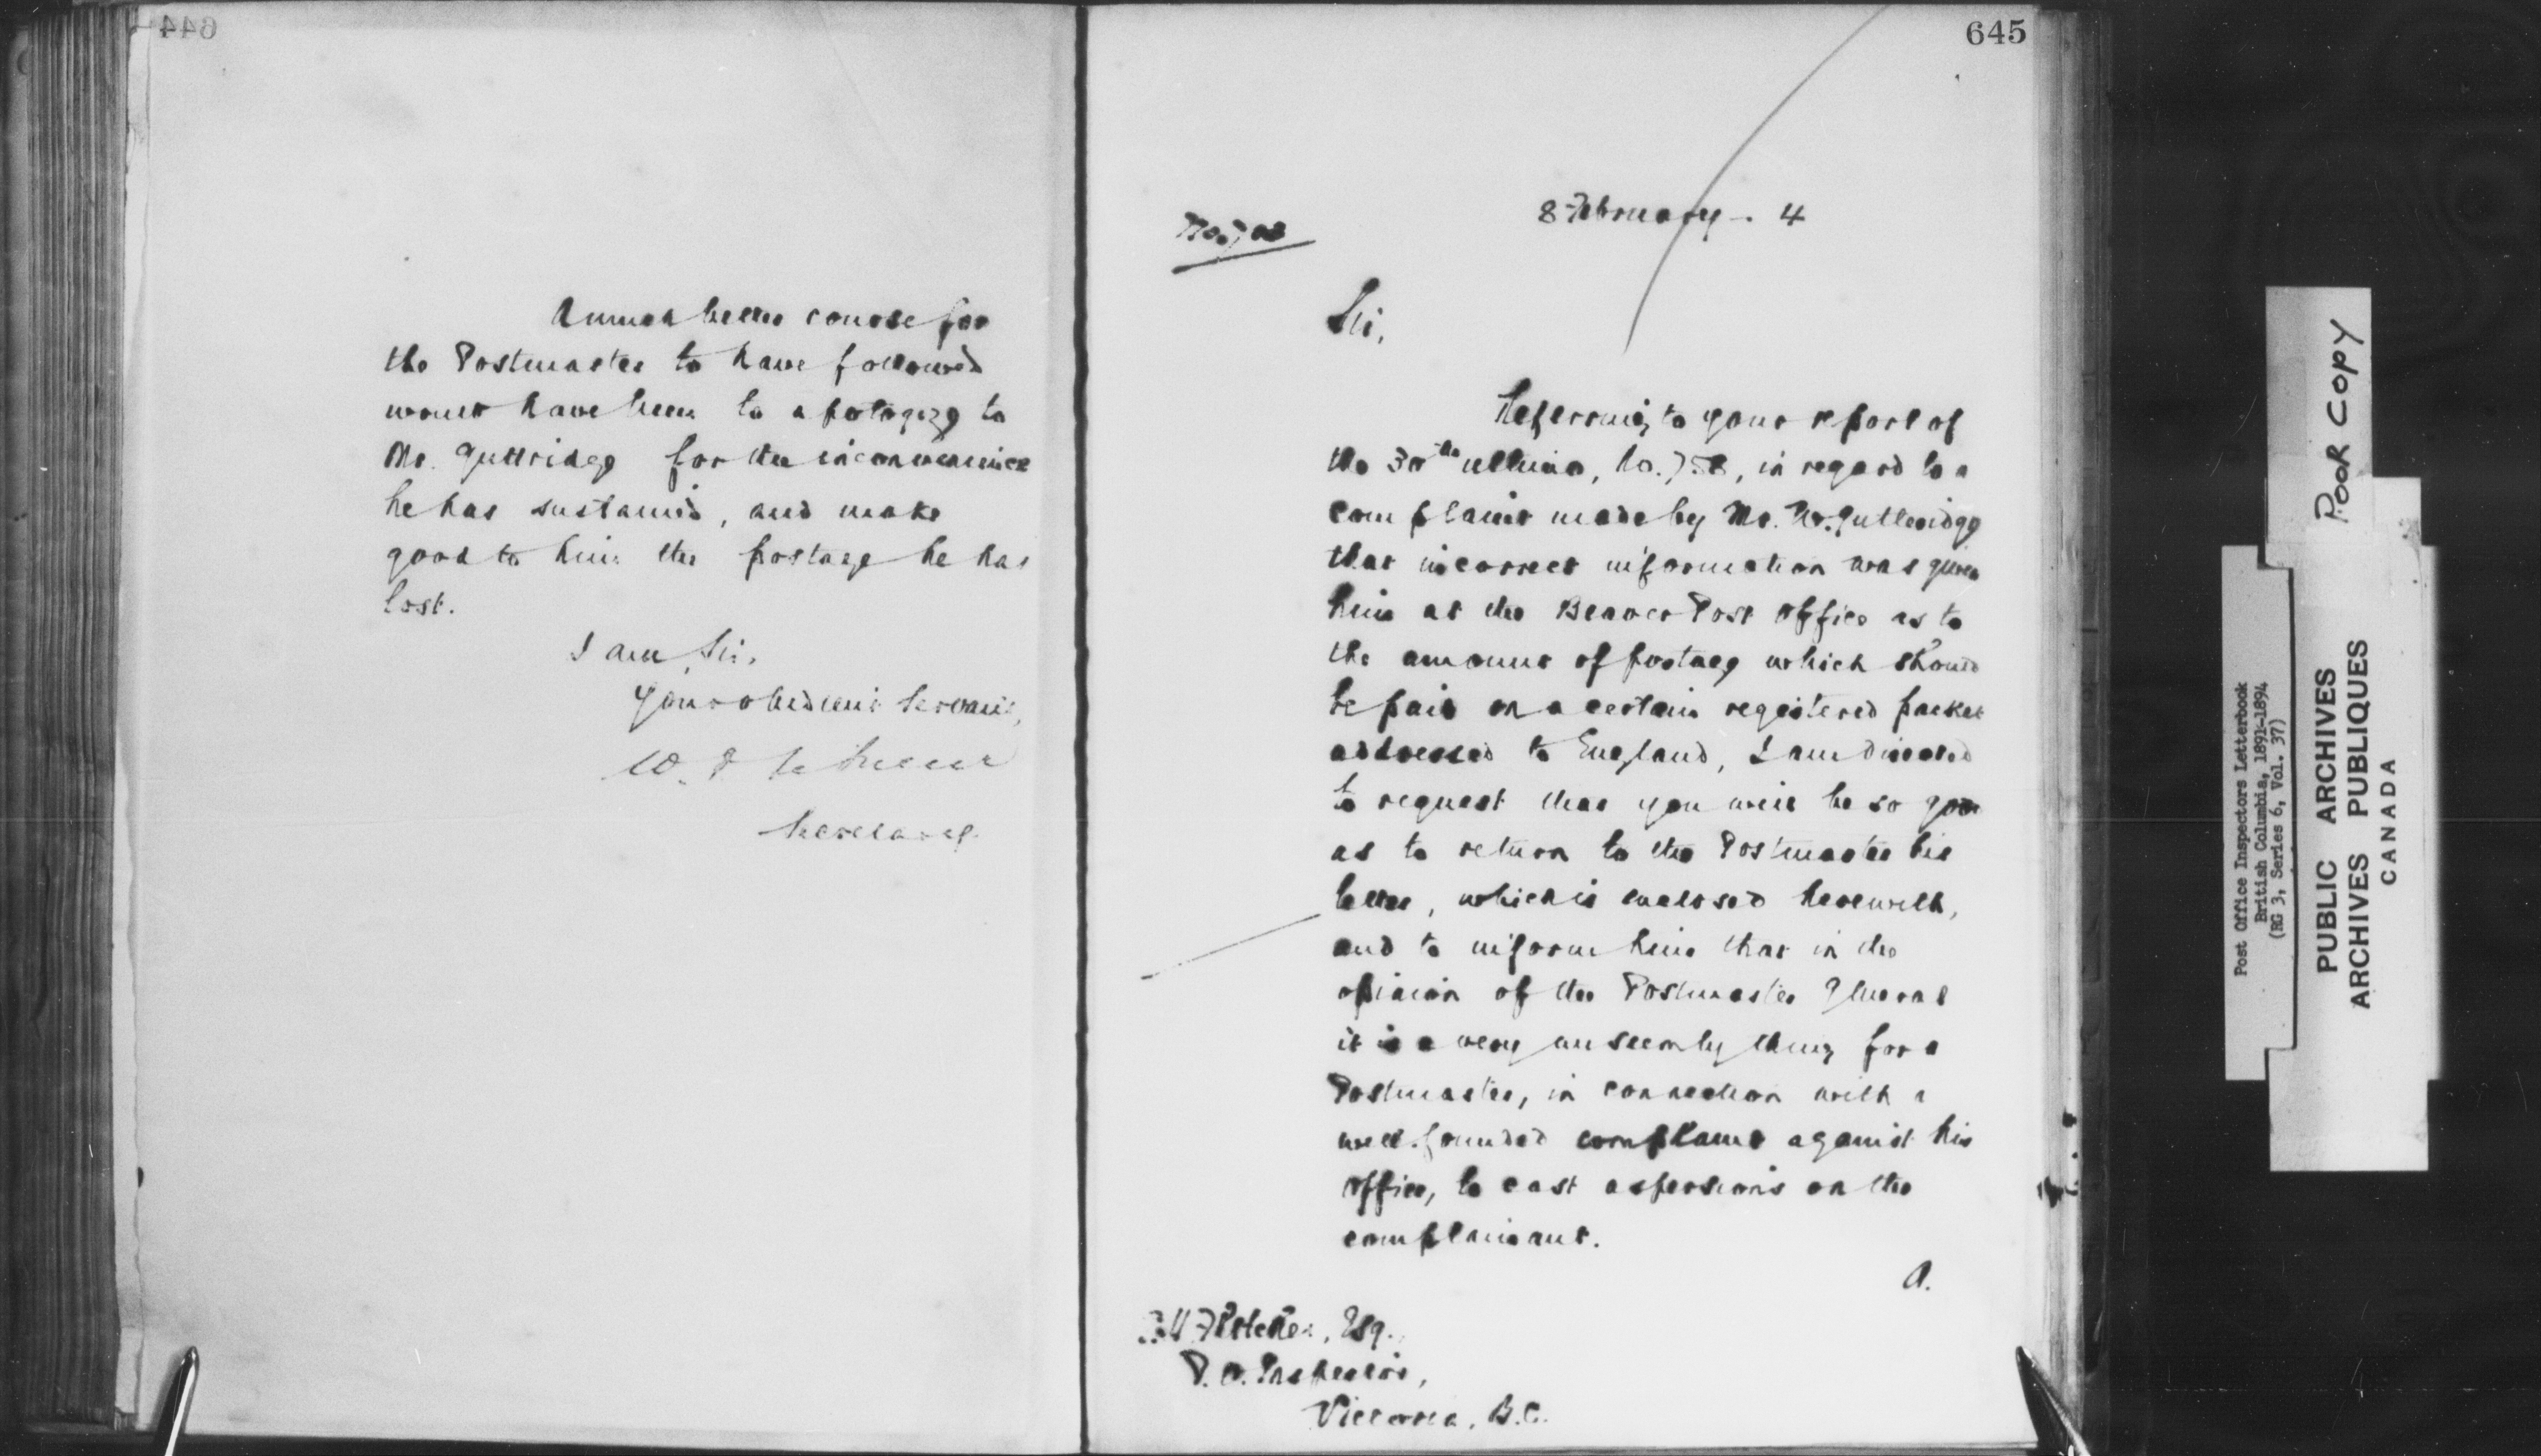 644
A much better course for
the Postmaster to have followed
would have been to apologize to
Mr. Guttridge for the inconvenience
he has sustained, and make
good to him the postage he has
lost.
I am, Sir,
Your obedient Servant,
W. D.
Secretary.
645
8 February - 4
No. 708
Sir,
Referring to your report of
the 30th ultimo, No. 758, in regard to a
complaint made by Mr. W. Gutteridge
that incorrect information was given
him at the Beaver Post Office as to
the amount of postage which should
be paid on a certain registered packet
addressed to England, I am directed
to request that you will be so good
as to return to the Postmaster his
letter, which is enclosed herewith,
and to inform him that in the
opinion of the Postmaster General
it is a very unseemly thing for a
Postmaster, in connection with a
well-founded complaint against his
office, to cast aspersions on the
complainant.
A.
Fletcher, Esq.,
P.O. Inspector,
Victoria, B.C.
POOR COPY
Post Office Inspectors Letterbook
British Columbia, 1891-1894
(RG 3, Series 6, Vol. 37)
PUBLIC ARCHIVES
ARCHIVES PUBLIQUES
CANADA